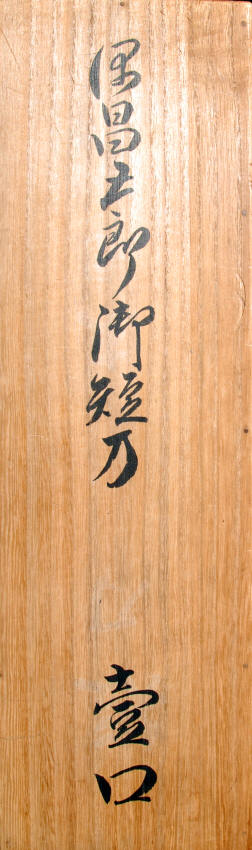 保昌五郎御短刀
壹口